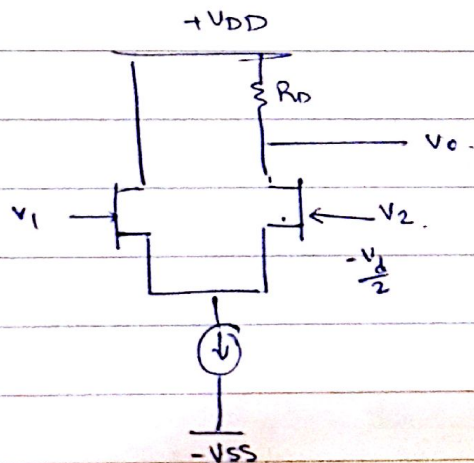 +VDD
RD
Vo.
V1
V2.
-Vd/2
-VSS